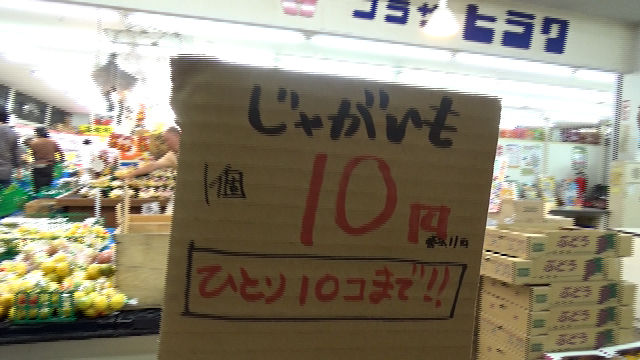 プラザヒラク
じゃがいも
1個
10円
ひとり10コまで!!
ぶどう
ぶどう
ぶどう
ぶどう
ぶどう